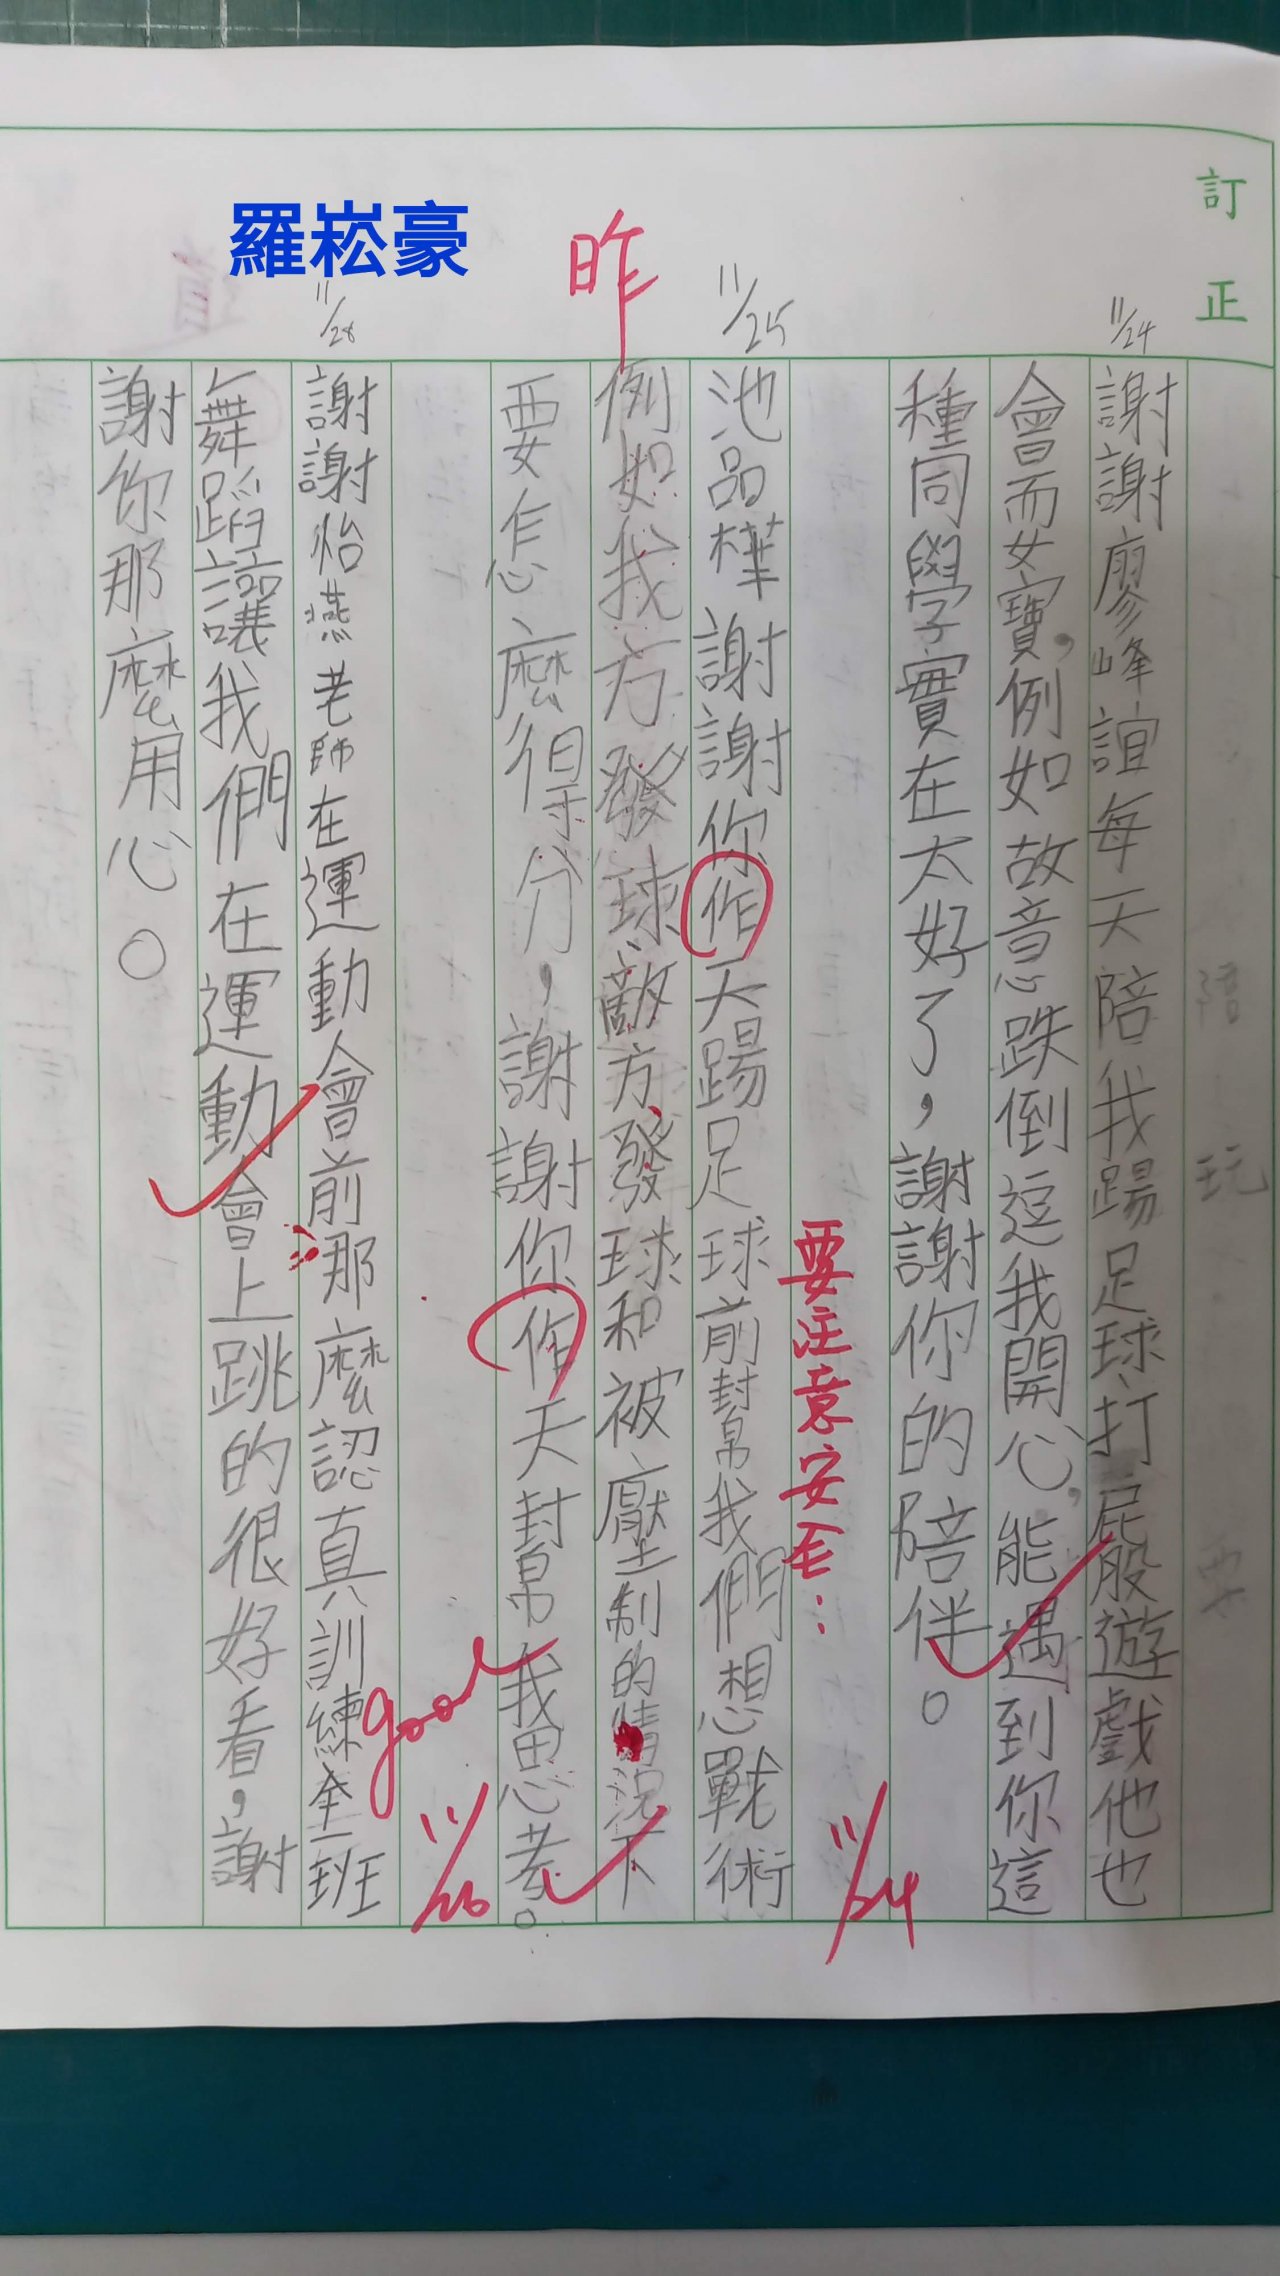 訂正
羅崧豪
11/24
謝謝廖峰誼每天陪我踢足球、打屁股遊戲他也
會而女寶,例如故意跌倒逗我開心,能遇到你這
種同學實在太好了,謝謝你的陪伴。
要注意安全:
11/24
11/25
池品樺謝謝你作天踢足球前幫我們想戰術
昨
例如我方發球、敵方發球和被壓制的情況下
要怎麼得分,謝謝你作天幫我思考。
good
11/28
謝謝怡燕老師在運動會前那麼認真訓練全班
舞蹈讓我們在運動會上跳的很好看,謝
謝你那麼用心。